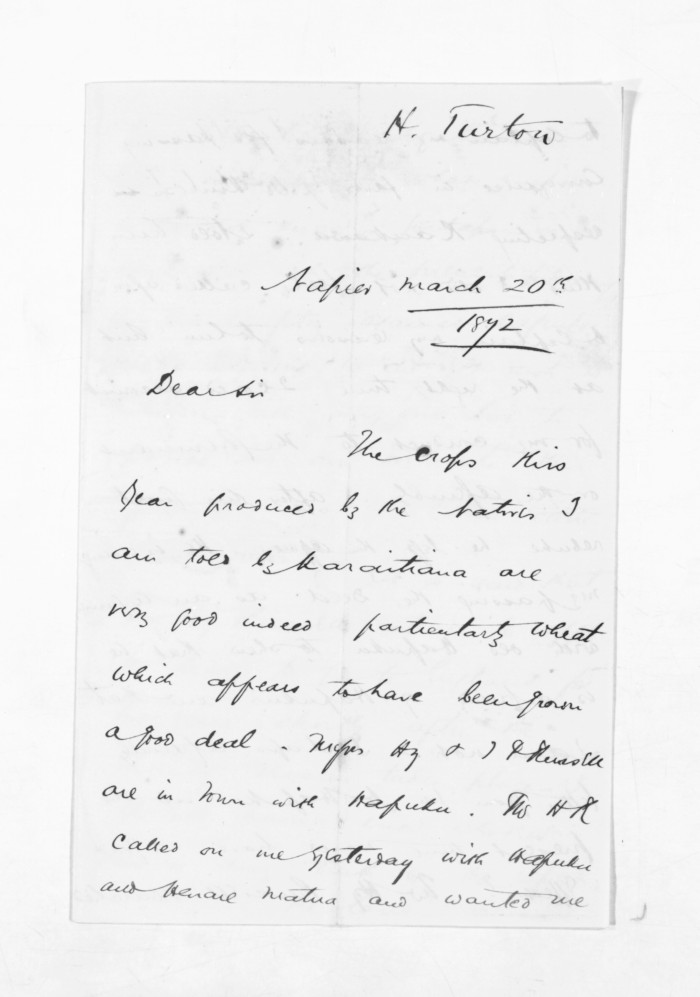 H. Turton
Napier March 20th
1872
Dear Sir
The crops this
Year produced by the Natives I
am told by Karaitiana are
very good indeed particularly wheat
which appears to have been grown
a good deal. Messrs Hy & Russell
are in Town with Hapuku. H R
called on me yesterday with Hapuku
and Henare Matua and wanted me